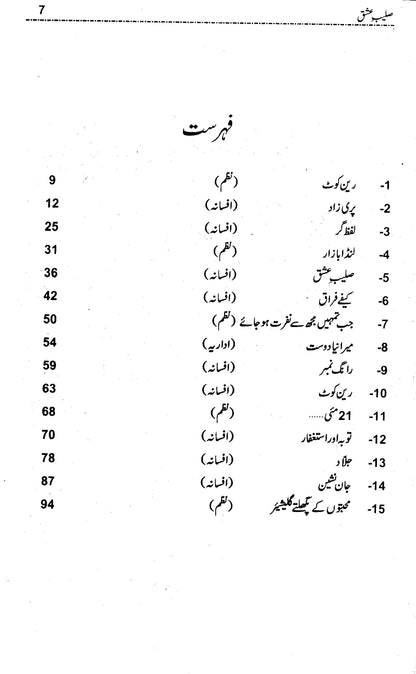 صلیبِ عشق 7
فہرست
1- رین کوٹ (نظم) 9
2- پری زاد (افسانہ) 12
3- لفظ گر (افسانہ) 25
4- لنڈا بازار (نظم) 31
5- صلیبِ عشق (افسانہ) 36
6- کیفے فراق (افسانہ) 42
7- جب تمہیں مجھ سے نفرت ہو جائے (نظم) 50
8- میرا نیا دوست (اداریہ) 54
9- رانگ نمبر (افسانہ) 59
10- رین کوٹ (افسانہ) 63
11- 21 مئی...... (نظم) 68
12- توبہ اور استغفار (افسانہ) 70
13- جلاد (افسانہ) 78
14- جان نشین (افسانہ) 87
15- محبتوں کے پگھلتے گلیشیئر (نظم) 94